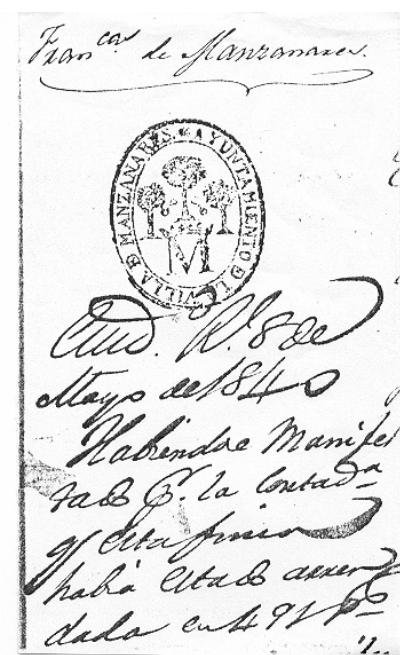 Fran.cas de Manzanares.
AYUNTAMIENTO D LA VILLA D MANZANARES
M
Ciud. R.l 8 de
Mayo de 1840
Habiendose Manifes
tado p.r la Contad.a
q.e esta finca
habia estado arren
dada en 491 r.s